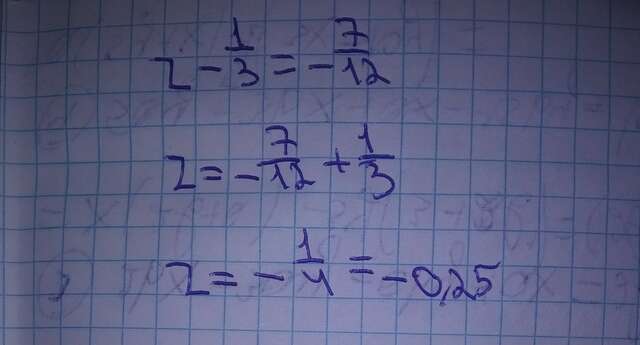 z - 1/3 = - 7/12
z = - 7/12 + 1/3
z = - 1/4 = - 0,25